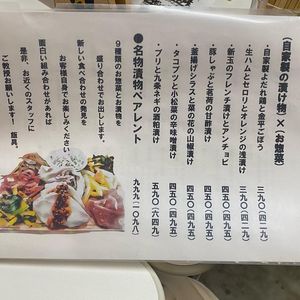 (自家製の漬け物)×(お惣菜)
・自家製よだれ鶏と金平ごぼう 三九〇(四二九)
・生ハムとセロリとオレンジの浅漬け 三九〇(四二九)
・新玉のフレンチ漬けとアンチョビ 四五〇(四九五)
・豚しゃぶと茗荷の甘酢漬け 四五〇(四九五)
・釜揚げシラスと菜の花の山葵漬け 四五〇(四九五)
・タコブツと小松菜の辛味噌漬け 四五〇(四九五)
・ブリと九条ネギの酒粕漬け 五九〇(六四九)
●名物漬物ペアレント 九九九(一〇九八)
9種類のお惣菜とお漬物を
盛り合わせでお出しします。
新しい食べ合わせの発見を
お客様自身でお楽しみください
面白い組み合わせがあれば
是非、お近くのスタッフに
ご教授お願いします!飯具。